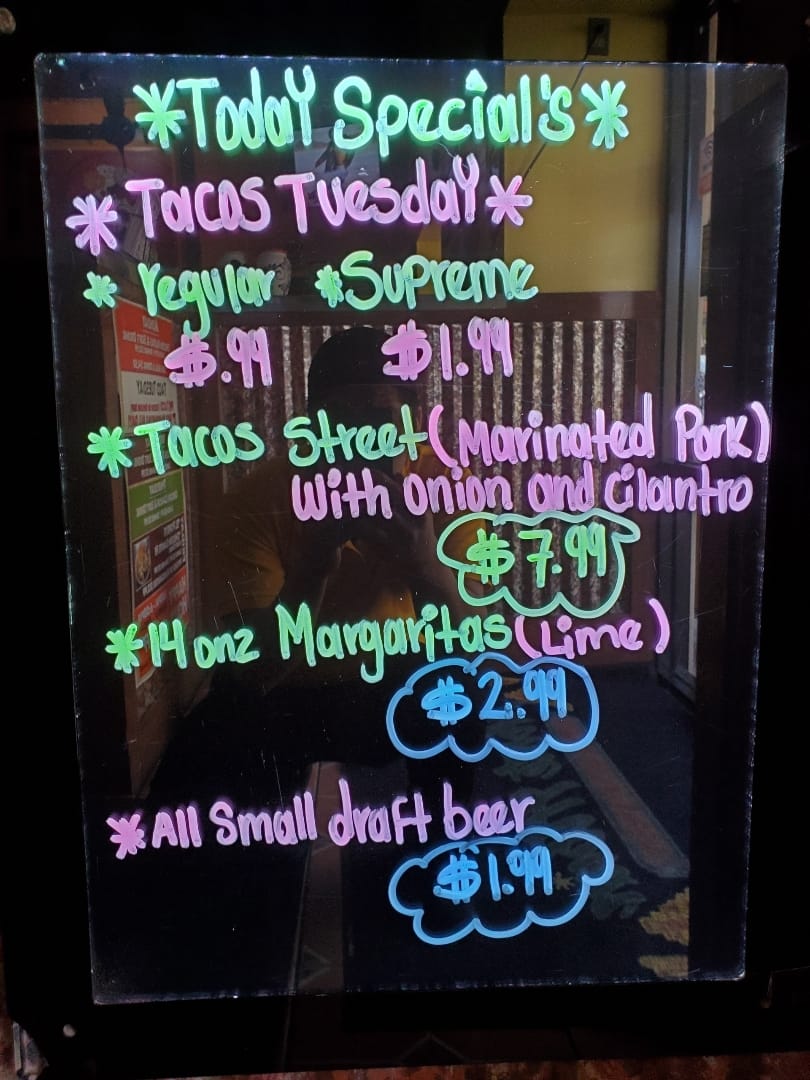 *Today Special's*
*Tacos Tuesday*
*regular *Supreme
$.99 $1.99
*Tacos Street (Marinated Pork)
With Onion and Cilantro
$7.99
*14onz Margaritas (Lime)
$2.99
*All Small draft beer
$1.99